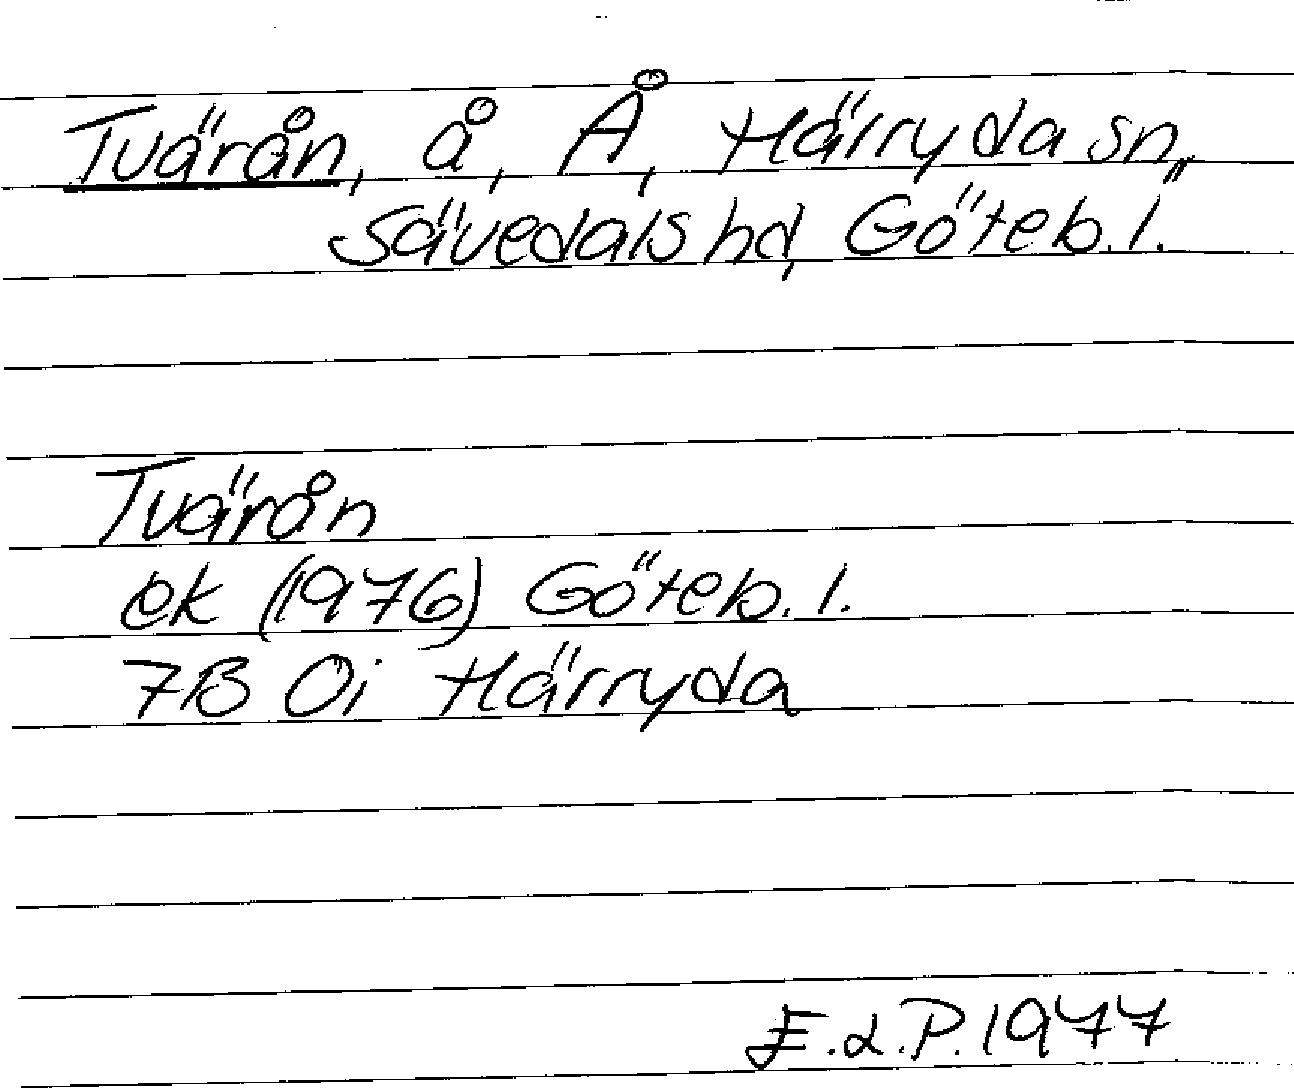 Tvärån, å, Å, Härryda sn,
Sävedals hd, Göteb. l.
Tvärån
ek (1976) Göteb. l.
7B 0i Härryda
E.d.P. 1977